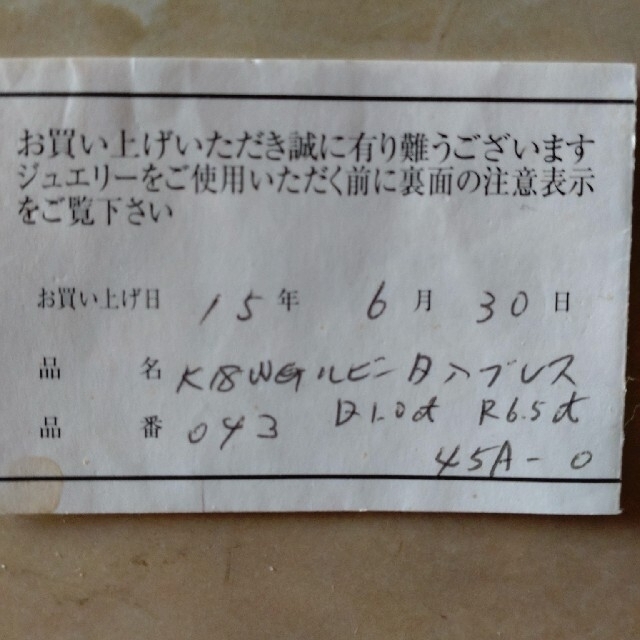 お買い上げいただき誠に有り難うございます
ジュエリーをご使用いただく前に裏面の注意表示
をご覧下さい
お買い上げ日 15年 6月 30日
品名 K18WGルビー Dブレス
品番 043 D1.0ct R6.5ct
45A-0